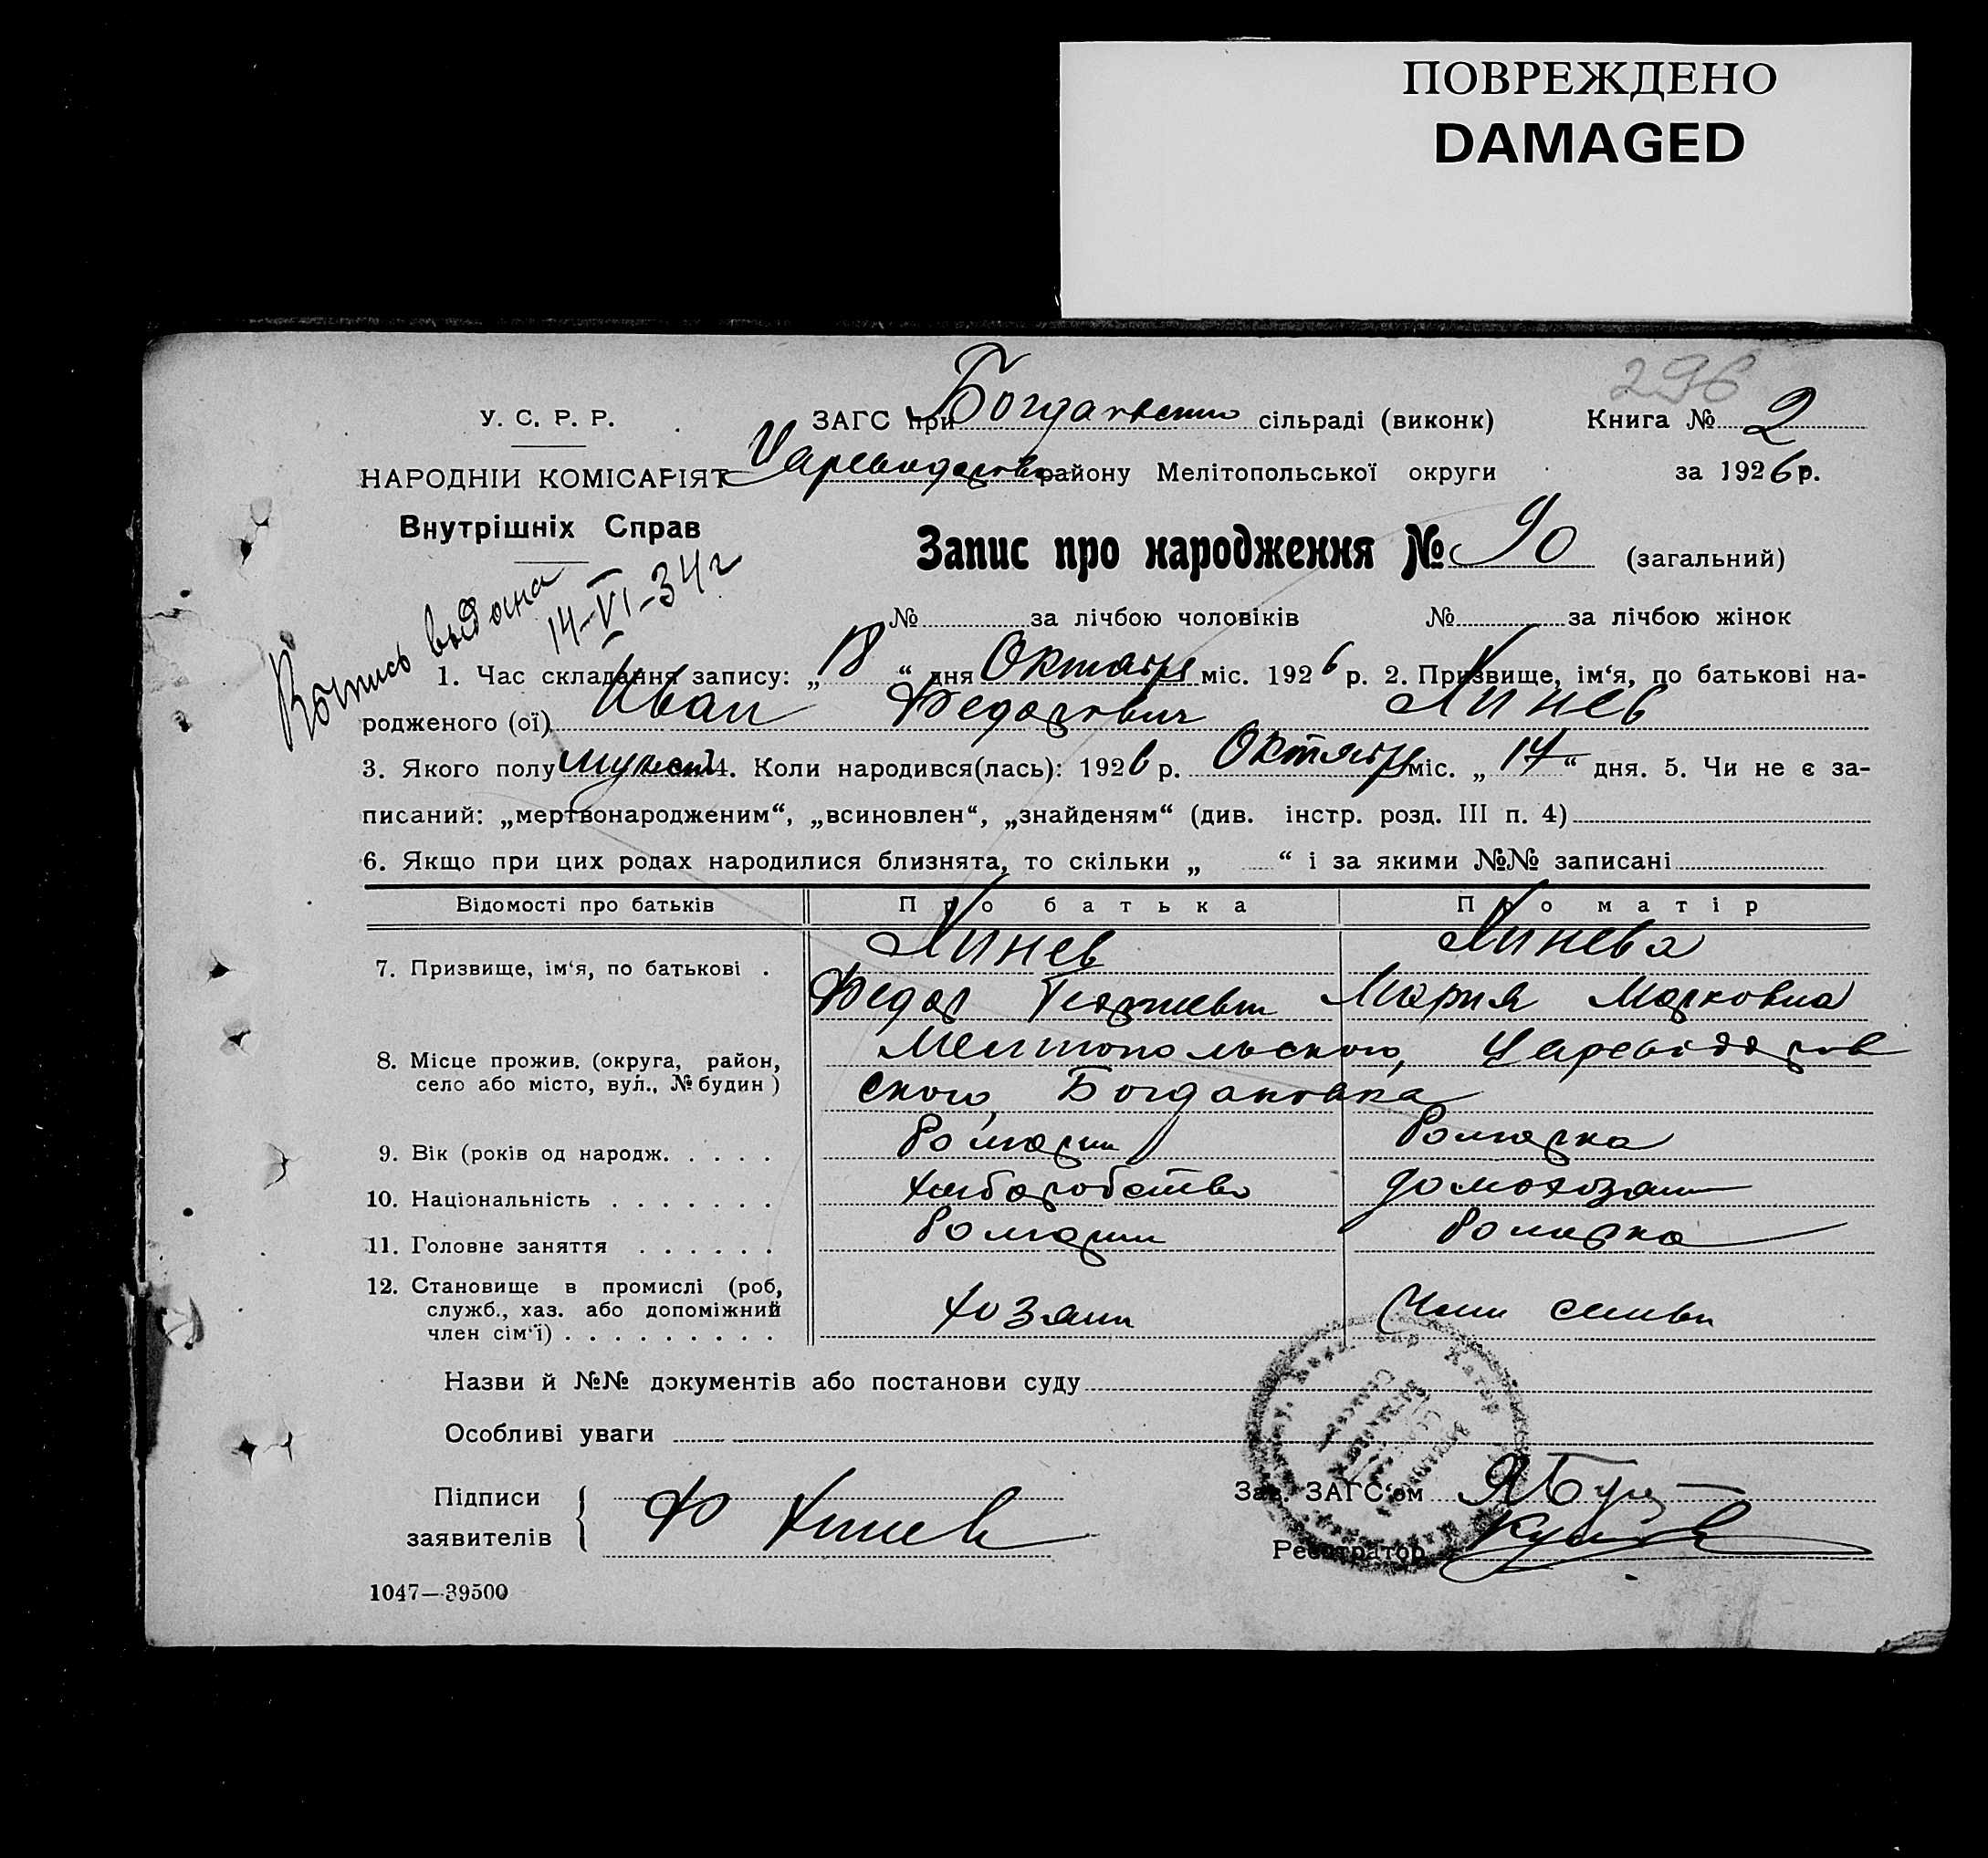 ПОВРЕЖДЕНО
DAMAGED
296
У. С. Р. Р.
ЗАГС при Богдановском сільраді (виконк)
Книга № 2
НАРОДНІЙ КОМІСАРІЯТ
району Мелітопольської округи
за 1926 р.
Внутрішніх Справ
Запис про народження № 90 (загальний)
выдана
14-VI-34 г
№ за лічбою чоловіків № за лічбою жінок
1. Час складання запису: „18“ дня Октября міс. 1926 р. 2. Призвище, ім‘я, по батькові на-
родженого (ої) Иван Федорович Линев
3. Якого полу мужск 4. Коли народився(лась): 1926 р. Октября міс. „17“ дня. 5. Чи не є за-
писаний: „мертвонародженим“, „всиновлен“, „знайденям“ (див. інстр. розд. III п. 4)
6. Якщо при цих родах народилися близнята, то скільки „ “ і за якими №№ записані
Відомості про батьків Про батька Про матір
7. Призвище, ім‘я, по батькові . Линев Линева
Федор Георгиевич Мария Марковна
8. Місце прожив. (округа, район,
село або місто, вул., № будин)
Мелитопольского, Цареводаров
ского, Богдановка
9. Вік (років од народж. . . . .
10. Національність . . . . . . . хлеборобство домохозяин
11. Головне заняття . . . . . .
12. Становище в промислі (роб,
служб., хаз. або допоміжний
член сім‘ї) . . . . . . . . . хозяин Член семьи
Назви й №№ документів або постанови суду
Особливі уваги
Підписи
заявителів
Ф Линев
Зав. ЗАГС‘ом
Реєстратор
1047—39500